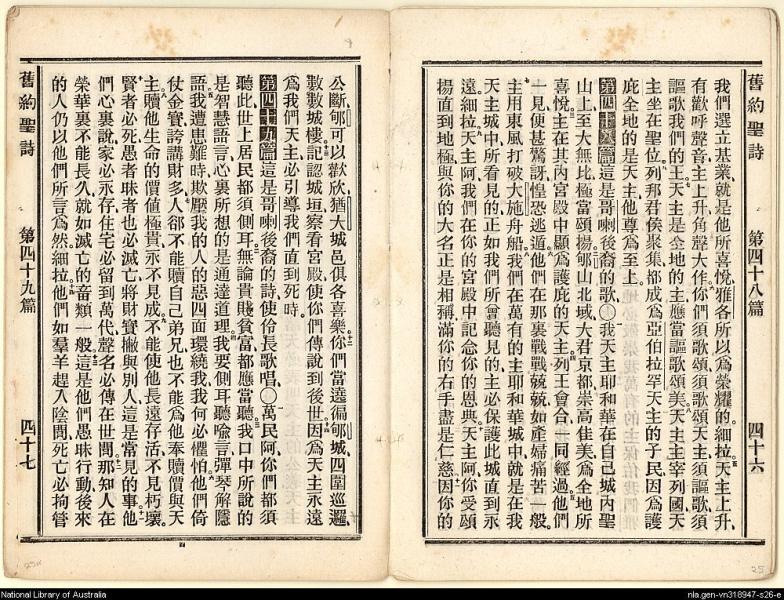 舊約聖詩 第四十八篇 四十六
我們選立基業、就是他所喜悅、雅各所以為榮耀的、細拉、天主上升、
有歡呼聲音、主上升、角聲大作、你們須歌頌、須歌頌天主、須謳歌、須
謳歌我們的王、天主是全地的主、應當謳歌頌美、天主主宰列國、天
主坐在聖位、列邦君侯聚集、都成為亞伯拉罕天主的子民、因為護
庇全地的是天主、他尊為至上。
第四十八篇 這是哥喇後裔的歌、〇我天主耶和華、在自己城內聖
山上、至大無比、極當頌揚、郇山北城、大君京都、崇高佳美、為全地所
喜悅、主在其內宮殿中、顯為護庇的天主、列王會合、一同經過、他們
一見便甚驚訝、惶恐逃遁、他們在那裏戰戰兢兢、如產婦痛苦一般、
主用東風打破大施舟船、我們在萬有的主耶和華城中、就是在我
天主城中所看見的、正如我們所曾聽見的、主必保護此城直到永
遠、細拉、天主阿、我們在你的宮殿中記念你的恩典、天主阿、你受頌
揚直到地極、與你的大名正是相稱、滿你的右手盡是仁慈、因你的
公斷、郇可以歡欣、猶大城邑俱各喜樂、你們當遶徧郇城、四圍巡邏、
數數城樓、記認城垣、察看宮殿、使你們傳說到後世、因為天主永遠
為我們天主、必引導我們直到死時。
第四十九篇 這是哥喇後裔的詩、使伶長歌唱、〇萬民阿、你們都須
聽、此世上居民都須側耳、無論貴賤貧富、都應當聽、我口中所說的
是智慧語言、心裏所想的是通達道理、我要側耳聽喻言、彈琴解隱
語、我遭患難時、欺壓我的人的惡四面環繞我、我何必懼怕、他們倚
仗金貲、誇講財多、人卻不能贖自己弟兄、也不能為他奉贖價與天
主、贖他生命的價值極貴、永不見成、不能使他長遠存活、不見朽壞、
賢者必死、愚者昧者也必滅亡、將財寶撇與別人、這是常見的事、他
們心裏說、家必永存、住宅必留到萬代、聲名必傳在世間、那知人在
榮華裏不能長久、就如滅亡的畜類一般、這是他們愚昧行動、後來
的人仍以他們所言為然、細拉、他們如羣羊趕入陰間、死亡必拘管
舊約聖詩 第四十九篇 四十七
National Library of Australia
nla.gen-vn318947-s26-e